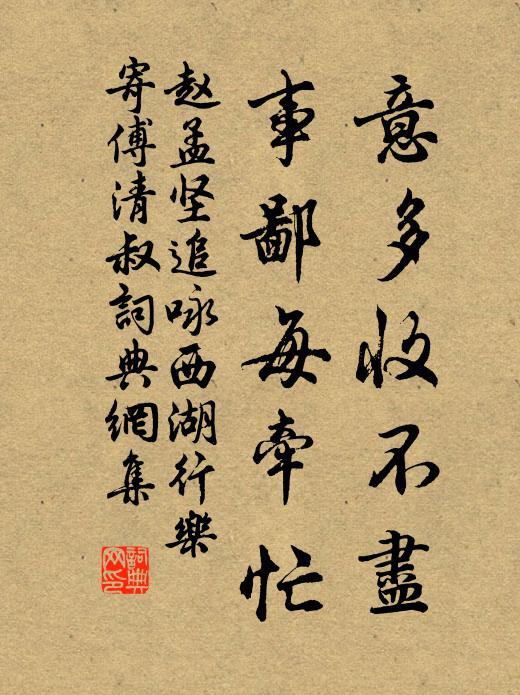 意多收不盡
事鄙每牽忙
赵孟坚追咏西湖行樂
寄傅清叔詞典網集
詞典网印